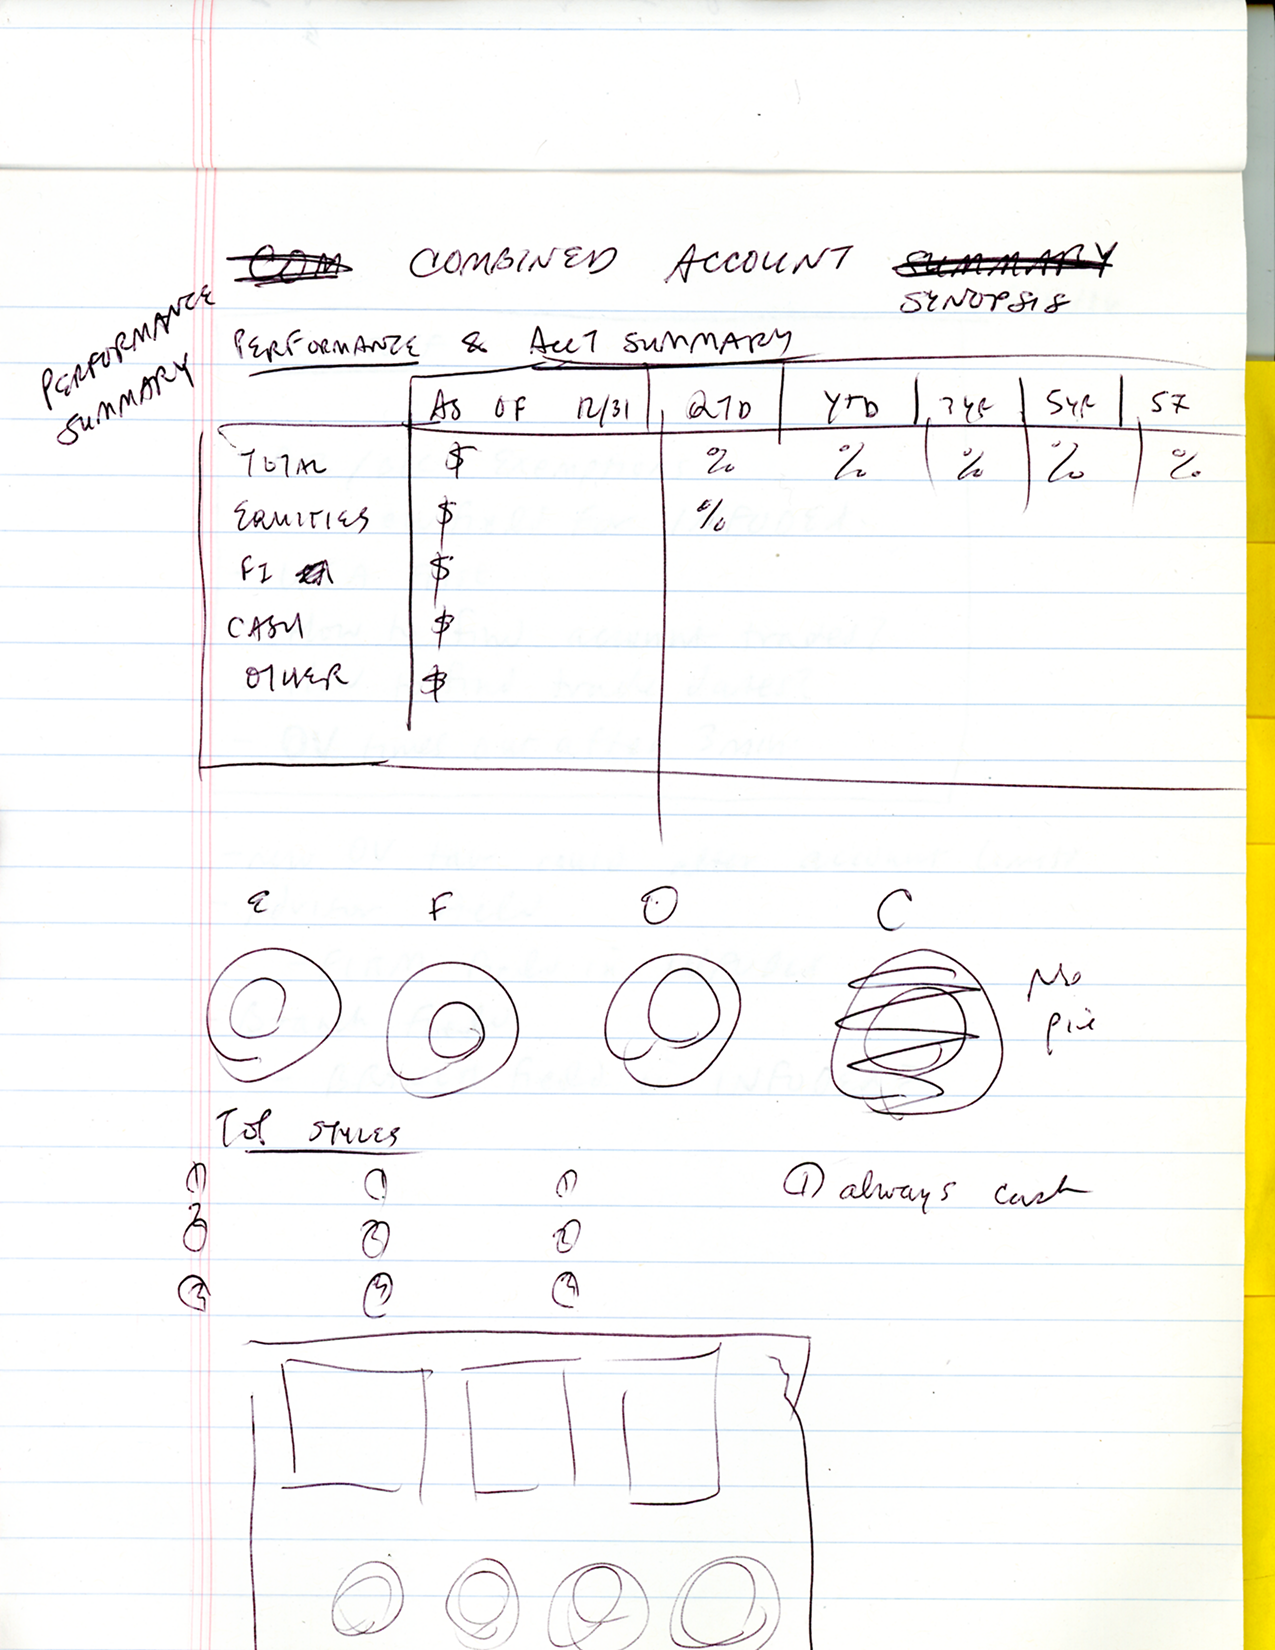 COM COMBINED ACCOUNT SUMMARY
SYNOPSIS
PERFORMANCE
SUMMARY
PERFORMANCE & ACCT SUMMARY
AS OF 12/31 QTD YTD 3YR 5YR
TOTAL $ % % % % %
EQUITIES $ %
FI $
CASH $
OTHER $
E F O C
No
pie
TOP STYLES
1 1 1 1 always cash
2 2 2
3 3 3